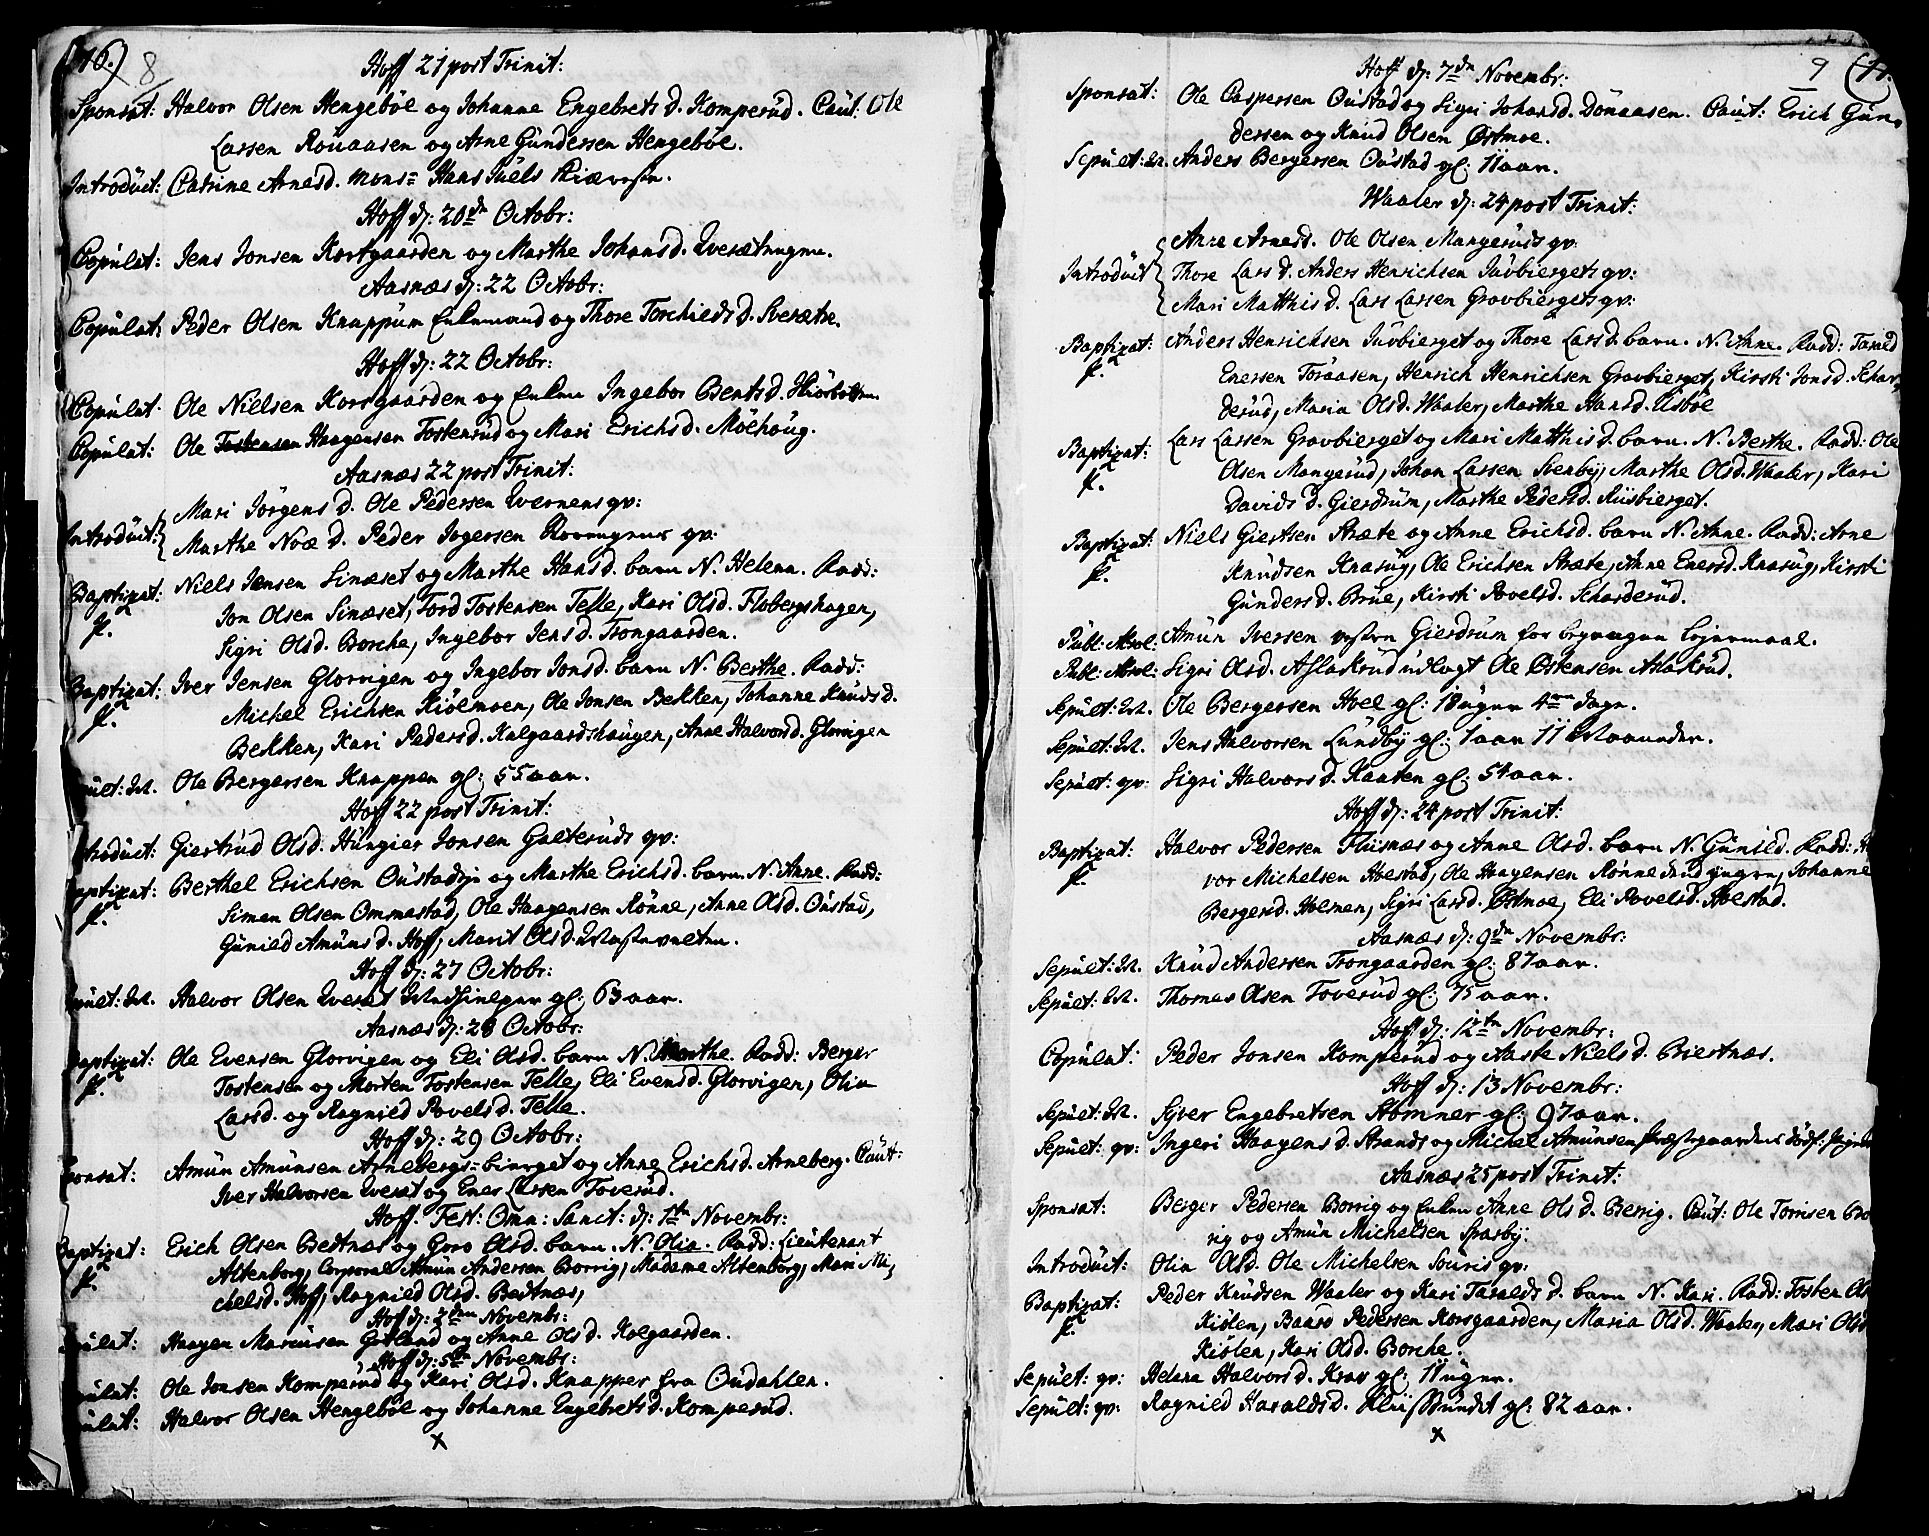 16.) 8
Hoff 21 post Trinit:
Sponsat: Halvor Olsen Hengebøl og Johanne Engebrets d. Komperud. Caut: Ole
Larsen Rouaasen og Arne Gundersen Hengebøl.
Introduct: Catrine Arnesd. mons: Hans Juels
Hoff d: 20de Octobr:
Copulat: Jens Jonsen Kortgaarden og Marthe Johansd.
Aasnæs d: 22 Octobr:
Copulat: Peder Olsen Knappum Enkemand og Thore Torchilds d. Sveætre.
Hoff d: 22 Octobr:
Copulat: Ole Nielsen Korsgaarden og Enken Ingebor Bentsd.
Copulat: Ole Tostensen Haagensen Tostensrud og Mari Erichs d. Møehoug.
Aasnæs 22 post Trinit:
Introduct: Mari Jørgens d. Ole Pedersen Evernens qv:
Marthe Noæ d. Peder Ingersen qv:
Baptizat: Niels Jensen Sinæset og Marthe Hansd. barn N. Helena. Fadd:
Jon Olsen Sinæset, Tord Tostensen Telle, Kari Olsd. Flobergshagen,
Sigri Olsd. Borche, Ingebor Jensd. Trongaarden.
Baptizat: Iver Jensen Glorvigen og Ingebor Jonsd. barn N. Berthe. Fadd:
Michel Erichsen Kiølmoen, Ole Jonsen Bekken, Johanne Knuds d.
Bekken, Kari Pedersd. Kalgaardshaugen, Anne Halvorsd. Glorvigen
Ole Bergersen Knappen gl: 55 aar.
Hoff 22 post Trinit:
Giertrud Olsd. Hungier Jonsen Galteruds qv:
Berthel Erichsen Oustadeje og Marthe Erichsd. barn N. Anne. Fadd:
Simen Olsen Ommestad, Ole Haagensen Rønne, Anne Olsd. Oustad,
Gunild Amunsd. Hoff, Marit Olsd.
Hoff d: 27 Octobr:
Halvor Olsen Qveset gl: 63 aar.
Aasnæs d: 28 Octobr:
Ole Evensen Glorvigen og Eli Olsd. barn N. Marthe. Fadd: Berger
Tostensen og Morten Tostensen Telle, Eli Evensd. Glorvigen, Olia
Larsd. og Ragnild Povelsd. Telle.
Hoff d: 29 Octobr:
Amun Amunsen Arnebergs-bierget og Anne Erichsd. Arneberg. Caut:
Iver Halvorsen Qveset og Ener Larsen Toverud.
Hoff. Fest: Omn: Sanct: d: 1ste Novembr:
Erich Olsen Bedtnæs og Goro Olsd. barn. N. Olia. Fadd: Lieutenant
Altenborg, Corporal Amun Andersen Borrig, Madame Altenborg, Mari Mi,
chelsd. Hoff, Ragnild Olsd. Bedtnæs,
Hoff d: 2den Novembr:
Haagen Marcusen Gotland og Anne Olsd. Kolgaarden.
Hoff d: 5te Novembr:
Ole Jonsen Komperud og Kari Olsd. Knapper fra Oudahlen.
Halvor Olsen Hengebøl og Johanne Engebretsd. Komperud.
x
9 (17.
Hoff d: 7de Novembr:
Sponsat: Ole Caspersen Oustad og Sigri Johansd. Donaasen. Caut: Erich Gun,
dersen og Knud Olsen Østmoe.
Sepult: M. Anders Bergersen Oustad gl: 11 aar.
Waaler d: 24 post Trinit:
Introduct Anne Arnesd. Ole Olsen Mangeruds qv:
Thore Larsd. Anders Henrichsen Juvbiergets qv:
Mari Matthisd. Lars Larsen Gravbiergets qv:
Baptizat: Anders Henrichsen Juvbierget og Thore Larsd. barn. N. Anne. Fadd: Tarald
Enersen Toraasen, Henrich Henrichsen Gravbierget, Kirsti Jonsd. Schar,
derud, Maria Olsd. Waaler, Marthe Hansd. Risbøl
Baptizat: Lars Larsen Gravbierget og Mari Matthisd. barn. N. Berthe. Fadd: Ole
Olsen Mangerud, Johan Larsen Svenby, Marthe Olsd. Waaler, Kari
Davids d. Gierdrum, Marthe Pedersd. Riisbierget.
Baptizat: Niels Giertsen Stræte og Anne Erichsd. barn N. Anne. Fadd: Arne
Knudsen Knasug, Ole Erichsen Stræte, Anne Enersd. Knasug, Kirsti
Gundersd. Brue, Kirsti Povelsd. Scharderud.
Publ: Absol: Amun Iversen Gierdrum for Leiermaal.
Publ: Absol: Sigri Olsd. Aslakrud udlagt Ole Østensen Aslakrud.
Sepult: M. Ole Bergersen Hoel gl: 18 uger 4re dage.
Sepult: M. Jens Halvorsen Lundby gl: 1 aar 11 Maaneder.
Sepult: qv: Sigri Halvorsd. Kaaten gl: 54 aar.
Hoff d: 24 post Trinit:
Baptizat: Halvor Pedersen Flisnæs og Anne Olsd. barn N. Gunild. Fadd:
vor Michelsen Hoelstad, Ole Haagensen Johanne
Bergersd. Holmen, Sigri Larsd. Østmoe, Eli Povelsd. Hoelstad.
Aasnæs d: 9de Novembr:
Sepult: M. Knud Andersen Trongaarden gl: 87 aar.
Sepult: M. Thomas Olsen Toverud gl: 75 aar.
Hoff d: 12te Novembr:
Copulat: Peder Jonsen Komperud og Aaste Niels d.
Hoff d: 13 Novembr:
Sepult: M. Syver Engebretsen Stømner gl: 97 aar.
Sepult: qv: Ingeri Haagens d. Strands og Michel Amunsen
Aasnæs 25 post Trinit:
Sponsat: Berger Pedersen Borrig og Enken Anne Ols d. Berrig. Caut: Ole Torrisen Bor
rig og Amun Michelsen Sparby.
Introduct: Olia Olsd. Ole Michelsen Souris qv:
Baptizat: Peder Knudsen Waaler og Kari Taraldsd. barn N. Kari. Fadd: Tosten Ols
Kiølen, Baard Pedersen Korsgaarden, Maria Olsd. Waaler, Mari Olsd
Kiølen, Kari Olsd. Borche.
Sepult: qv: Helena Halvorsd. Krav gl: 11 uger.
Sepult: qv: Ragnild Haraldsd. gl: 82 aar.
x